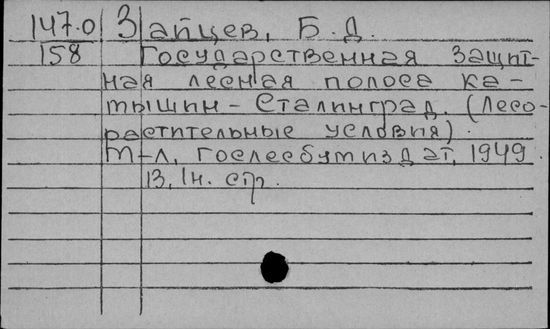 147.0 Зайцев, Б.Д.
158 Государственная защит-
ная лесная полоса Ка-
мышин - Сталинград. (Лесо-
растительные условия).
М-Л, Гослесбумиздат, 1949.
13, 1н. стр.